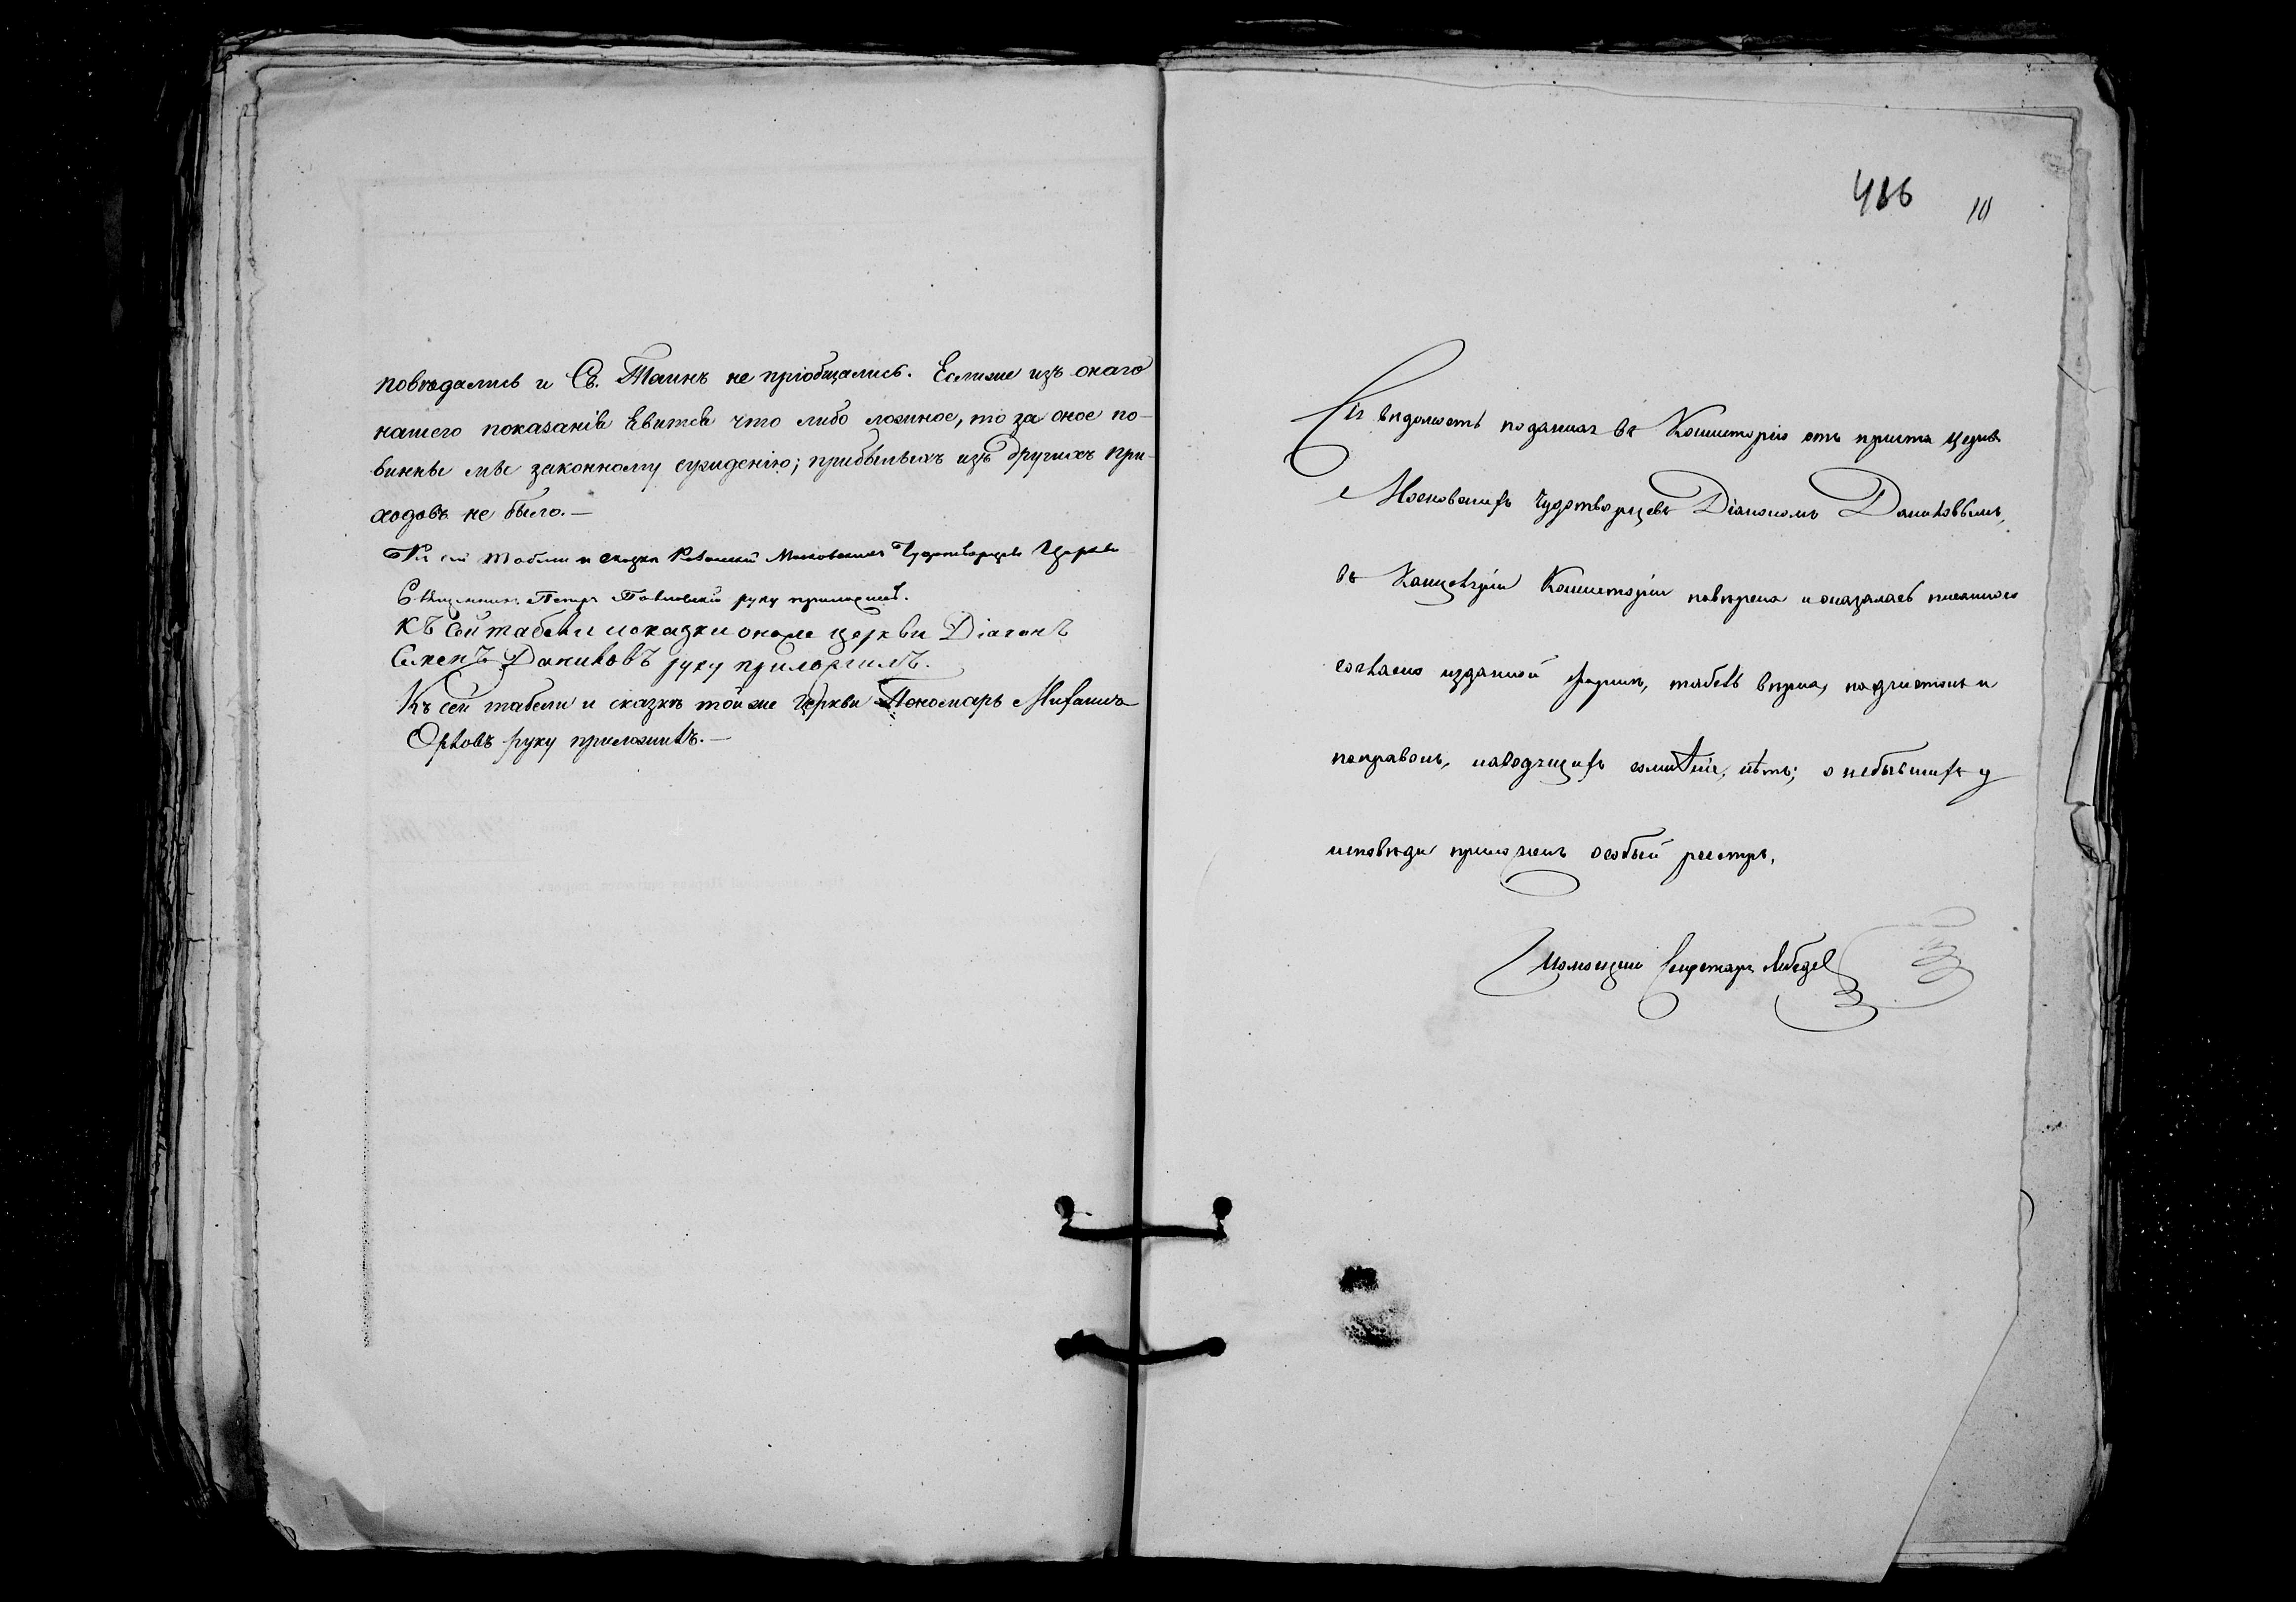 повѣдались и Св. Таинъ не пріобщались. Если же изъ онаго
нашего показанія явится что либо ложное, то за оное по-
винны мы законному сужденію; прибылыхъ изъ другихъ при-
ходовъ не было. —
Къ сей табели и сказкѣ Казанской Московскихъ Чудотворцевъ Церкви
Священникъ Петръ Павловскій руку приложилъ.
Къ сей табели и сказки оноже церкви Діаконъ
Симеонъ Даниловъ руку приложилъ.
Къ сей табели и сказкѣ тойже Церкви Пономарь Михаилъ
Орловъ руку приложилъ. —
486 10
Сія вѣдомость поданная въ Консисторію отъ причта церкв
Московскихъ Чудотворцевъ Діакономъ Даниловымъ,
въ Канцеляріи Консисторіи повѣрена и оказалась писанною
согласно изданной формѣ, табель вѣрна, подчистокъ и
поправокъ, наводящихъ сомнѣніе, нѣтъ; о небывшихъ у
исповѣди приложенъ особый реестръ.
Помощникъ Секретаря Лебедев